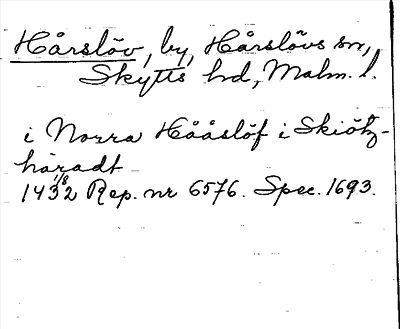 Hårslöv, by, Hårslövs sn,
Skytts hd, Malm. l.
i Norra Hååslöf i Skiötz-
häradt
1/8
1432 Rep. nr 6576. Spec. 1693.